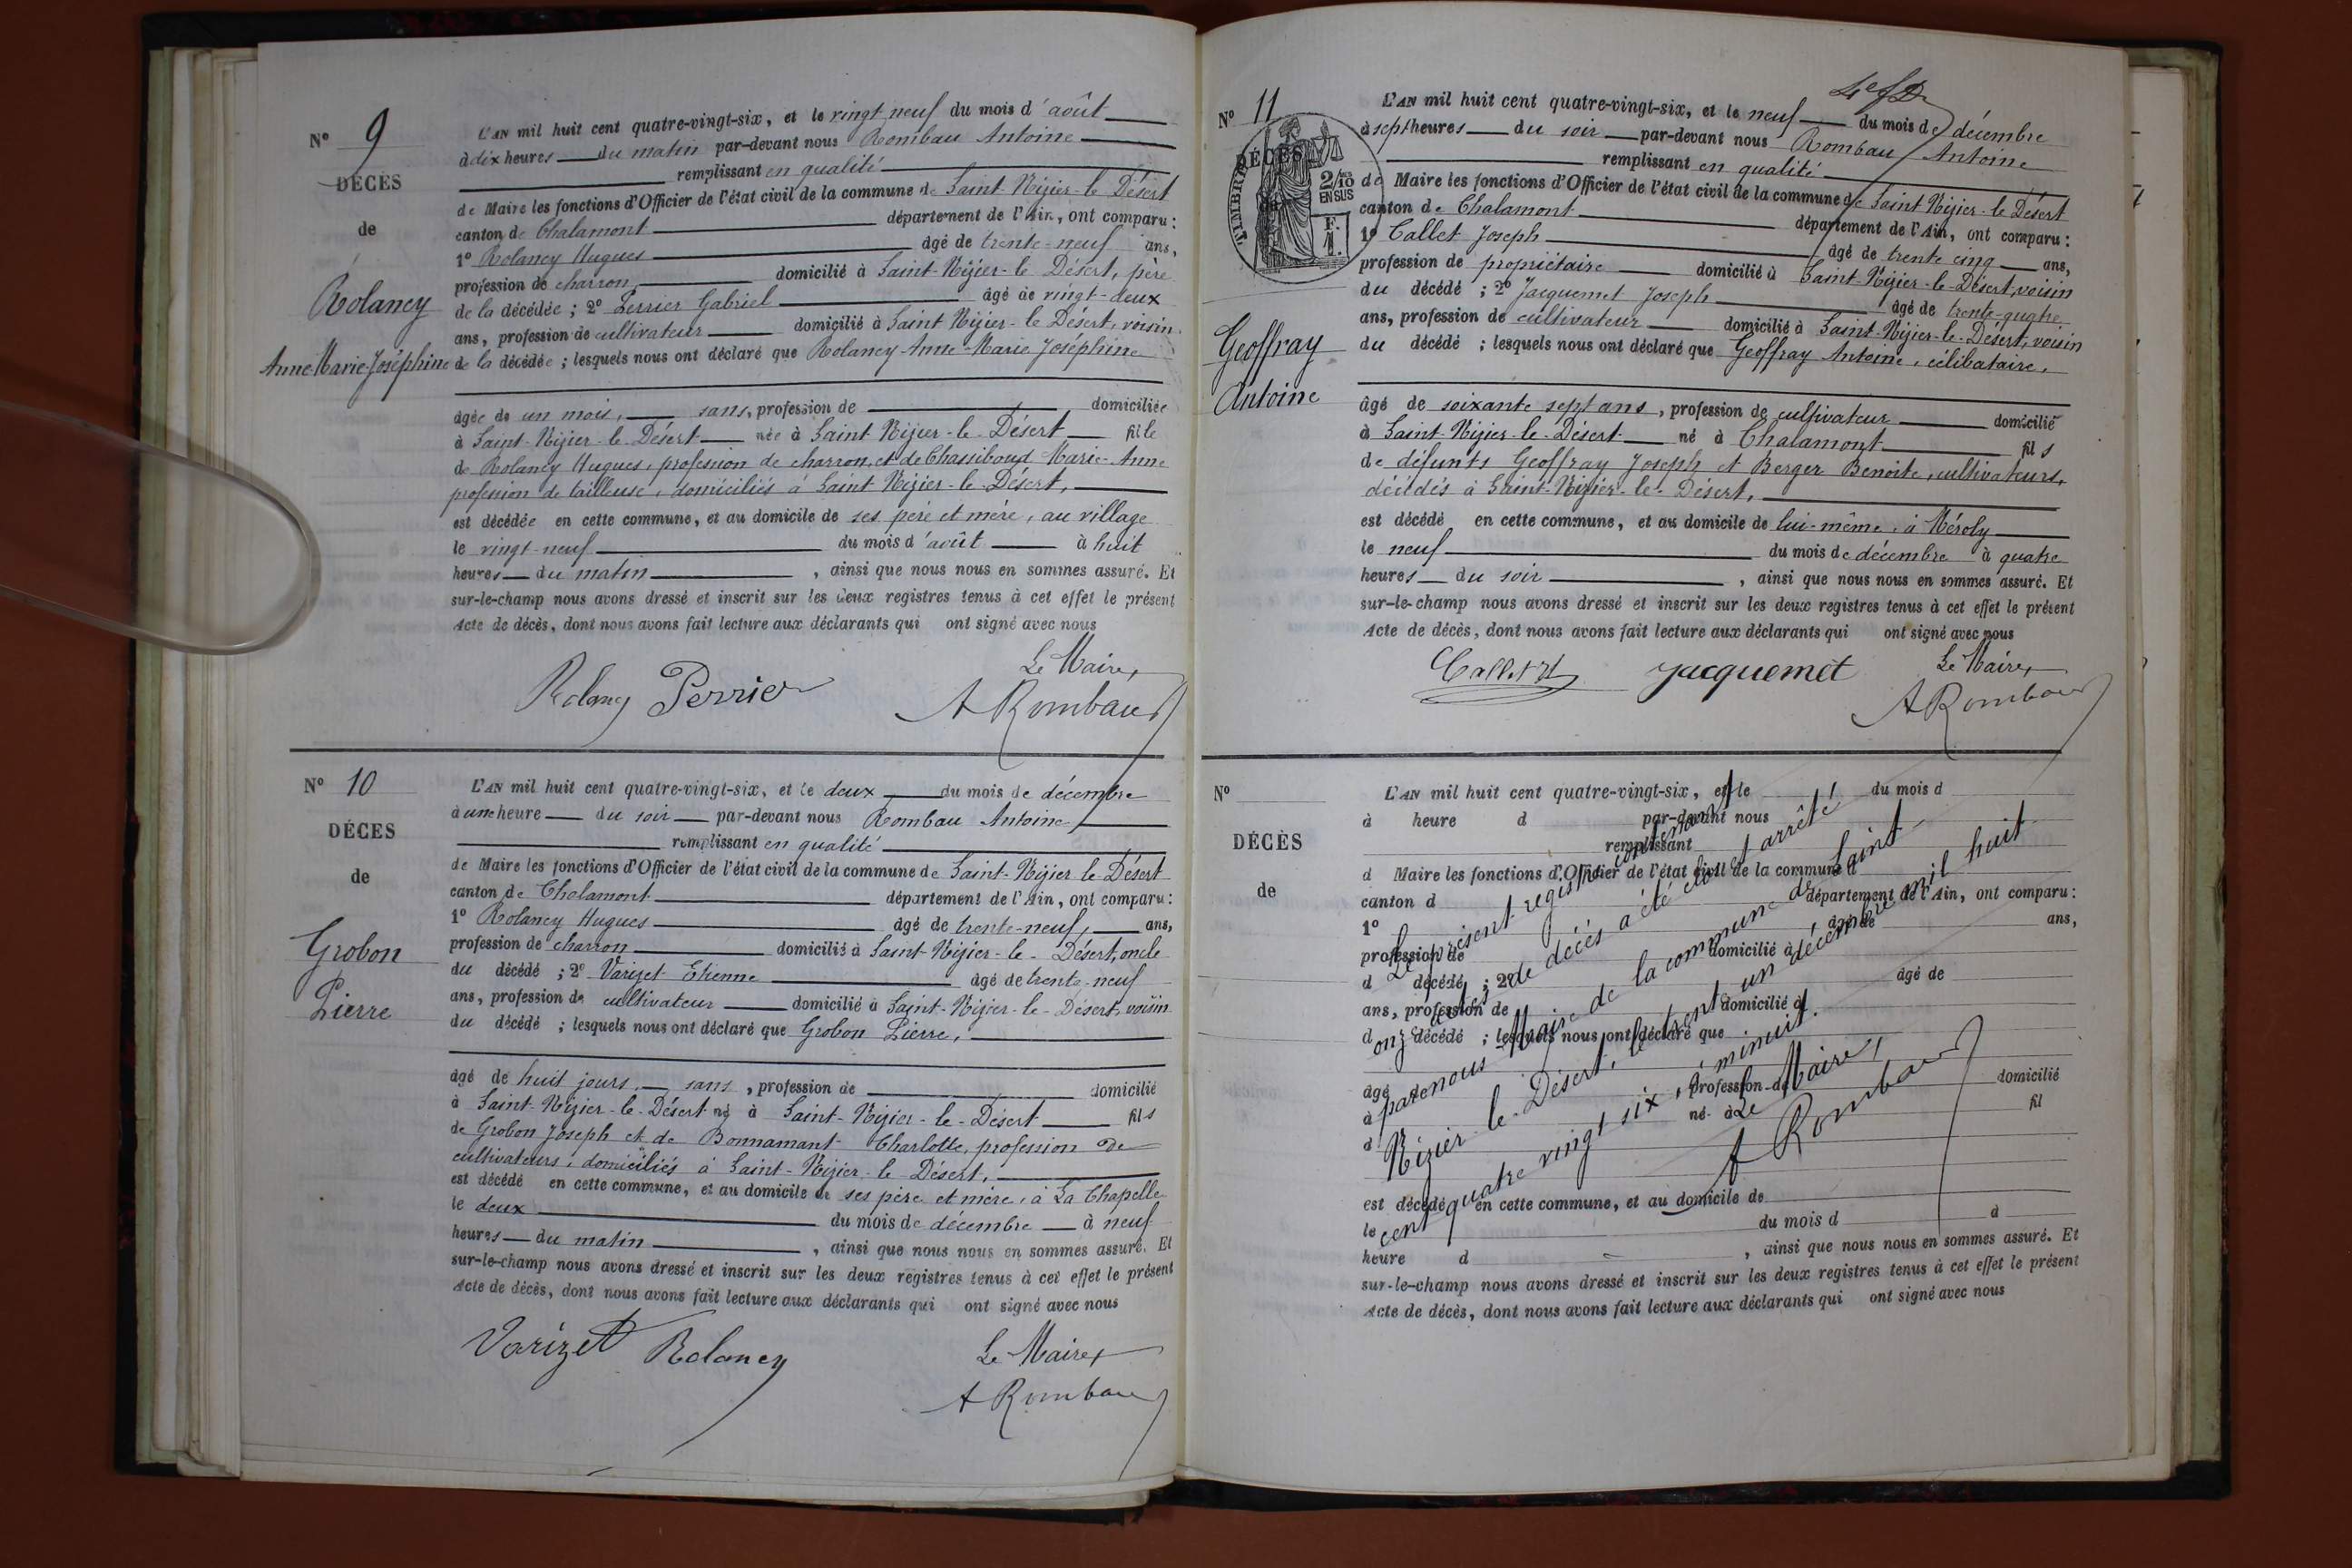 N° 9
DÉCÈS
de
Rolancy
Anne-Marie-Joséphine
L'AN mil huit cent quatre-vingt-six, et le vingt neuf du mois d'août
à dix heures du matin par-devant nous Rombau Antoine
remplissant en qualité
de Maire les fonctions d'Officier de l'état civil de la commune de Saint-Nizier-le-Désert
canton de Chalamont département de l'Ain, ont comparu :
1° Rolancy Hugues âgé de trente-neuf ans,
profession de charron domicilié à Saint-Nizier-le Désert, père
de la décédée ; 2° Perrier Gabriel âgé de vingt-deux
ans, profession de cultivateur domicilié à Saint Nizier-le Désert, voisin
de la décédée ; lesquels nous ont déclaré que Rolancy Anne-Marie Joséphine
âgée de un mois, sans, profession de domiciliée
à Saint-Nizier-le-Désert née à Saint Nizier-le-Désert fille
de Rolancy Hugues, profession de charron, et de Chassiboud Marie-Anne
profession de tailleuse, domiciliés à Saint Nizier-le-Désert,
est décédée en cette commune, et au domicile de ses père et mère, au village
le vingt-neuf du mois d'août à huit
heures du matin , ainsi que nous nous en sommes assuré. Et
sur-le-champ nous avons dressé et inscrit sur les deux registres tenus à cet effet le présent
Acte de décès, dont nous avons fait lecture aux déclarants qui ont signé avec nous
Le Maire,
Rolancy Perrier A Rombau
N° 10
DÉCÈS
de
Grobon
Pierre
L'AN mil huit cent quatre-vingt-six, et le deux du mois de décembre
à une heure du soir par-devant nous Rombau Antoine
remplissant en qualité
de Maire les fonctions d'Officier de l'état civil de la commune de Saint-Nizier le Désert
canton de Chalamont département de l'Ain, ont comparu :
1° Rolancy Hugues âgé de trente-neuf, ans,
profession de charron domicilié à Saint-Nizier-le-Désert, oncle
du décédé ; 2° Varizet Etienne âgé de trente-neuf
ans, profession de cultivateur domicilié à Saint-Nizier-le-Désert, voisin
du décédé ; lesquels nous ont déclaré que Grobon Pierre,
âgé de huit jours, sans, profession de domicilié
à Saint-Nizier-le-Désert né à Saint-Nizier-le-Désert fils
de Grobon Joseph et de Bonnamant Charlotte, profession de
cultivateurs, domiciliés à Saint-Nizier-le-Désert,
est décédé en cette commune, et au domicile de ses père et mère, à La Chapelle
le deux du mois de décembre à neuf
heures du matin , ainsi que nous nous en sommes assuré. Et
sur-le-champ nous avons dressé et inscrit sur les deux registres tenus à cet effet le présent
Acte de décès, dont nous avons fait lecture aux déclarants qui ont signé avec nous
Varizet Rolancy Le Maire
A Rombau
N° 11
DÉCÈS
TIMBRE
2/10 EN SUS
F. 1.
Geoffray
Antoine
L'AN mil huit cent quatre-vingt-six, et le neuf du mois de décembre
à sept heures du soir par-devant nous Rombau Antoine
remplissant en qualité
de Maire les fonctions d'Officier de l'état civil de la commune de Saint Nizier-le Désert
canton de Chalamont département de l'Ain, ont comparu :
1° Callet Joseph âgé de trente cinq ans,
profession de propriétaire domicilié à Saint-Nizier-le-Désert, voisin
du décédé ; 2° Jacquemet Joseph âgé de trente-quatre
ans, profession de cultivateur domicilié à Saint-Nizier-le-Désert, voisin
du décédé ; lesquels nous ont déclaré que Geoffray Antoine, célibataire,
âgé de soixante sept ans, profession de cultivateur domicilié
à Saint-Nizier-le-Désert né à Chalamont fils
de défunts Geoffray Joseph et Berger Benoite, cultivateurs,
décédés à Saint-Nizier-le-Désert,
est décédé en cette commune, et au domicile de lui-même, à Méroly
le neuf du mois de décembre à quatre
heures du soir , ainsi que nous nous en sommes assuré. Et
sur-le-champ nous avons dressé et inscrit sur les deux registres tenus à cet effet le présent
Acte de décès, dont nous avons fait lecture aux déclarants qui ont signé avec nous
Callet Jacquemet Le Maire,
A Rombau
N°
DÉCÈS
de
L'AN mil huit cent quatre-vingt-six, et le du mois d
à heure d par-devant nous
remplissant
d Maire les fonctions d'Officier de l'état civil de la commune d
canton d département de l'Ain, ont comparu :
1° âgé de ans,
profession de domicilié à
d décédé ; 2° âgé de
ans, profession de domicilié à
d décédé ; lesquels nous ont déclaré que
âgé profession de domicilié
à né à fil
d
est décédé en cette commune, et au domicile de
le du mois d à
heure d , ainsi que nous nous en sommes assuré. Et
sur-le-champ nous avons dressé et inscrit sur les deux registres tenus à cet effet le présent
Acte de décès, dont nous avons fait lecture aux déclarants qui ont signé avec nous
Le présent registre contenant
onze actes de décès a été clos et arrêté
par nous Maire de la commune de Saint
Nizier le-Désert, le trente un décembre mil huit
cent quatre vingt six, à minuit.
Le Maire,
A Rombau